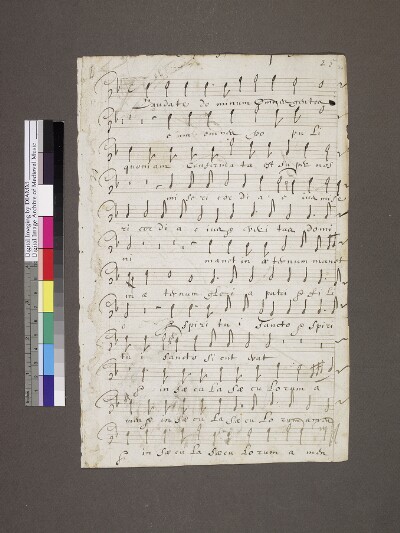 21
Laudate dominum omnes gentes
eum omnes po pu li
quoniam confirma ta est super nos
mi se ri cor di a e ius mise
ri cor di a e ius veri tas domi
ni manet in æ ternum manet
in æ ternum glori patri et fi li
o spiri tui sancto spiri
tu sancto si cut erat
in sæ cu la sæ cu lorum a
men in sæ cu la sæ cu lo rum amen
in sæ cu la sæcu lorum a men
Digital Imaging by DIAMM
Digital Image Archive of Medieval Music